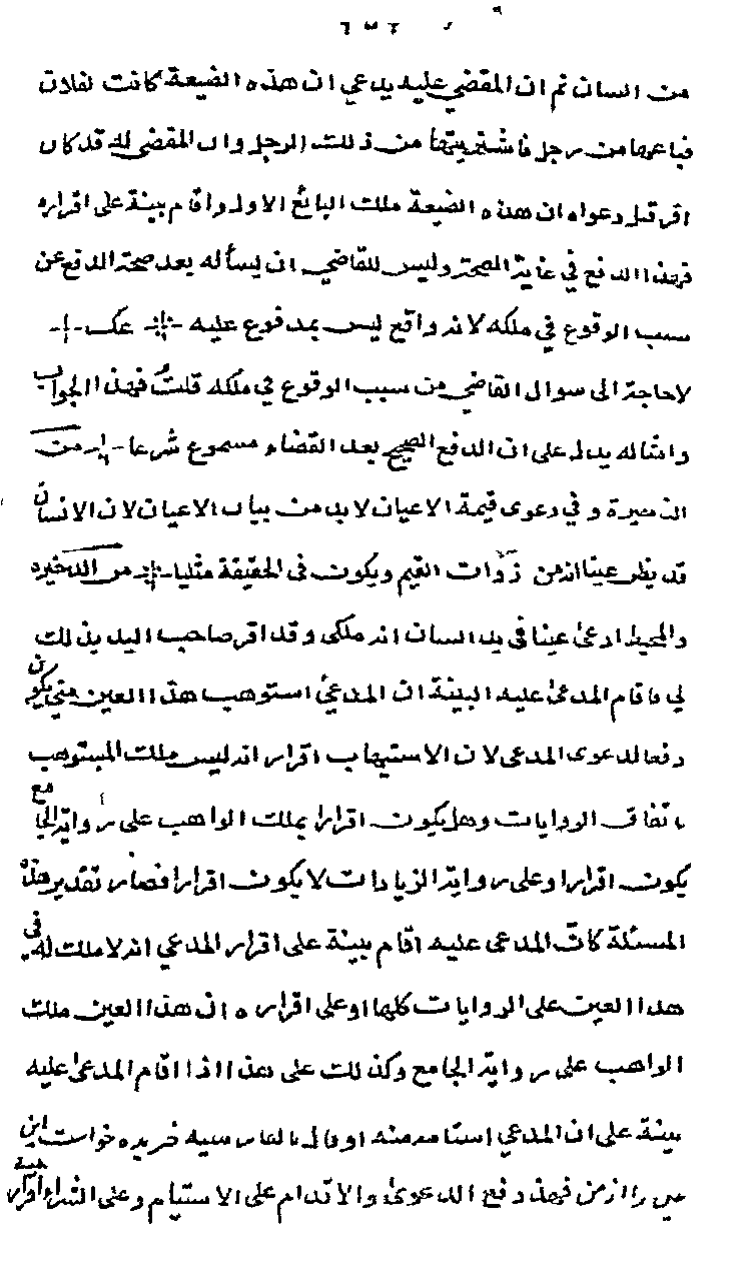 من انسان ثم ان المقضي عليه يدعي ان هذه الضيعة كانت لفلان
فباعها من رجل فاشتريتها من ذلك الرجل وان المقضي له قد كان
اقر قبل دعواه ان هذه الضيعة ملك البائع الاول واقام بينة على اقراره
فهذا الدفع في غاية الصحة وليس للقاضي ان يسأله بعد صحة الدفع عن
سبب الوقوع في ملكه لانه واقع ليس بمدفوع عليه عك
لا حاجة الى سوال القاضي من سبب الوقوع في ملكه قلت فهذا الجواب
وامثاله يدل على ان الدفع الصحيح بعد القضاء مسموع شرعا من
الذخيرة و في دعوى قيمة الاعيان لا بد من بيان الاعيان لان الانسان
قد يظن عينا انه من ذوات القيم ويكون في الحقيقة مثليا من الذخيره
والمحيط ادعى عينا في يد انسان انه ملكى وقد اقر صاحب اليد بذلك
لي فاقام المدعى عليه البينة ان المدعي استوهب هذا العين مني يكون
دفعا لدعوى المدعى لان الاستيهاب اقرار انه ليس ملك المستوهب
باتفاق الروايات وهل يكون اقرارا بملك الواهب على رواية الجامع
يكون اقرارا وعلى رواية الزيادات لا يكون اقرارا فصار تقدير هذه
المسئلة كانّ المدعى عليه اقام بينة على اقرار المدعي انه لا ملك له في
هذا العين على الروايات كلها او على اقراره ان هذا العين ملك
الواهب على رواية الجامع وكذلك على هذا اذا اقام المدعى عليه
بينة على ان المدعي استامه منه او قال بالفارسيه خريده خواست اين
عين را از من فهذ دفع الدعوى والاقدام على الاستيام وعلى الشراء اقرار